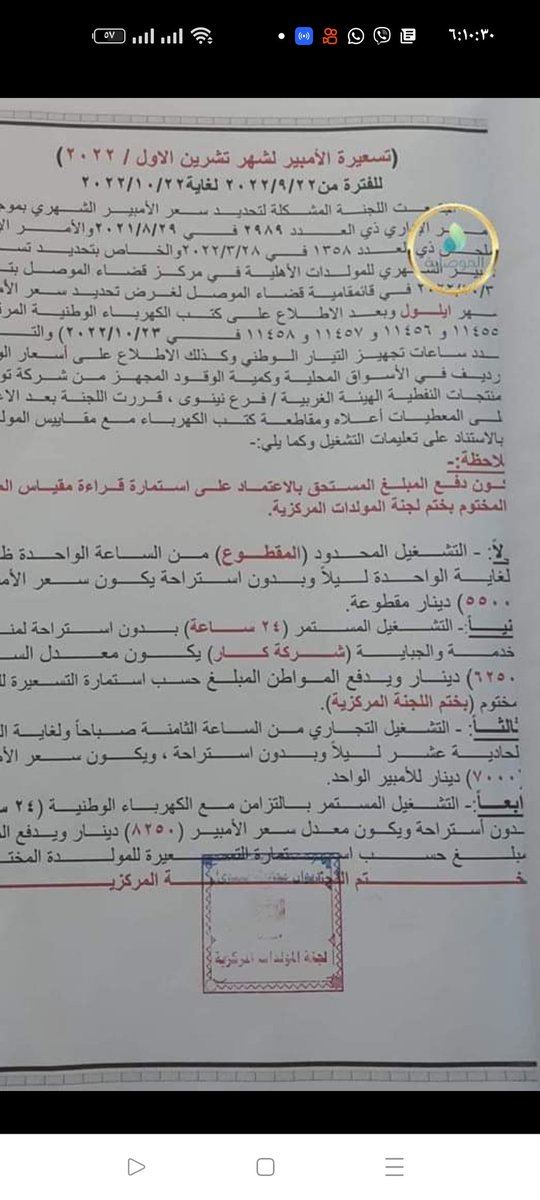 ٥٧
٦:١٠:٣٠
(تسعيرة الأمبير لشهر تشرين الاول / ٢٠٢٢)
للفترة من٢٠٢٢/٩/٢٢ لغاية٢٠٢٢/١٠/٢٢
ت اللجنة المشكلة لتحديد سعر الأمبير الشهري بموج
ر الإداري ذي العدد ٢٩٨٩ في ٢٠٢١/٨/٢٩والأمر الإ
ذي العدد ١٣٥٨ في ٢٠٢٢/٣/٢٨والخاص بتحديد تس
الموصلية
الشهري للمولدات الأهلية في مركز قضاء الموصل بت
في قائمقامية قضاء الموصل لغرض تحديد سعر الأم
هر ايلول وبعد الاطلاع على كتب الكهرباء الوطنية المرق
١١٤٥٥ و ١١٤٥٦ و ١١٤٥٧ و ١١٤٥٨ في ٢٠٢٢/١٠/٢٣) والت
دد ساعات تجهيز التيار الوطني وكذلك الاطلاع على أسعار الو
رديف في الأسواق المحلية وكمية الوقود المجهز من شركة تو
منتجات النفطية الهيئة الغربية / فرع نينوى ، قررت اللجنة بعد الا
لى المعطيات أعلاه ومقاطعة كتب الكهرباء مع مقاييس المول
بالاستناد على تعليمات التشغيل وكما يلي:-
لاحظة:-
ون دفع المبلغ المستحق بالاعتماد على استمارة قراءة مقياس ال
المختوم بختم لجنة المولدات المركزية.
لاً: - التشغيل المحدود (المقطوع) من الساعة الواحدة ظ
لغاية الواحدة ليلاً وبدون استراحة يكون سعر الأم
٥٥٠٠) دينار مقطوعة.
نياً:- التشغيل المستمر (٢٤ ساعة) بدون استراحة لمن
خدمة والجباية (شركة كار) يكون معدل الس
٦٢٥٠) دينار ويدفع المواطن المبلغ حسب استمارة التسعيرة لل
مختوم (بختم اللجنة المركزية).
الثاً: - التشغيل التجاري من الساعة الثامنة صباحاً ولغاية ال
لحادية عشر ليلاً وبدون استراحة ، ويكون سعر الأم
(٧٠٠٠) دينار للأمبير الواحد.
ابعاً:- التشغيل المستمر بالتزامن مع الكهرباء الوطنية (٢٤ س
دون أستراحة ويكون معدل سعر الأمبير (٨٢٥٠) دينار ويدفع ال
مبلغ حسب استمارة التسعيرة للمولدة المخت
ختم اللجنة المركزي
لجنة المولدات المركزية